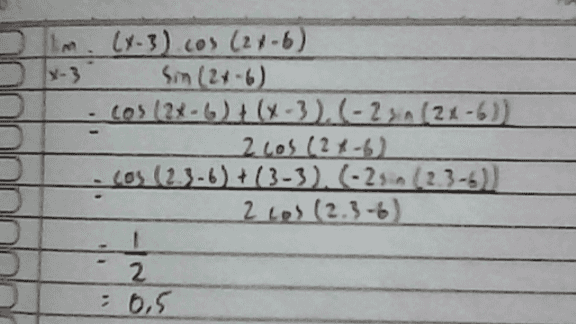 lim (x-3) cos (2x-6)
x-3 sin (2x-6)
= cos (2x-6) + (x-3). (-2 sin (2x-6))
2 cos (2x-6)
= cos (2.3-6) + (3-3). (-2 sin (2.3-6))
2 cos (2.3-6)
= 1
2
= 0,5